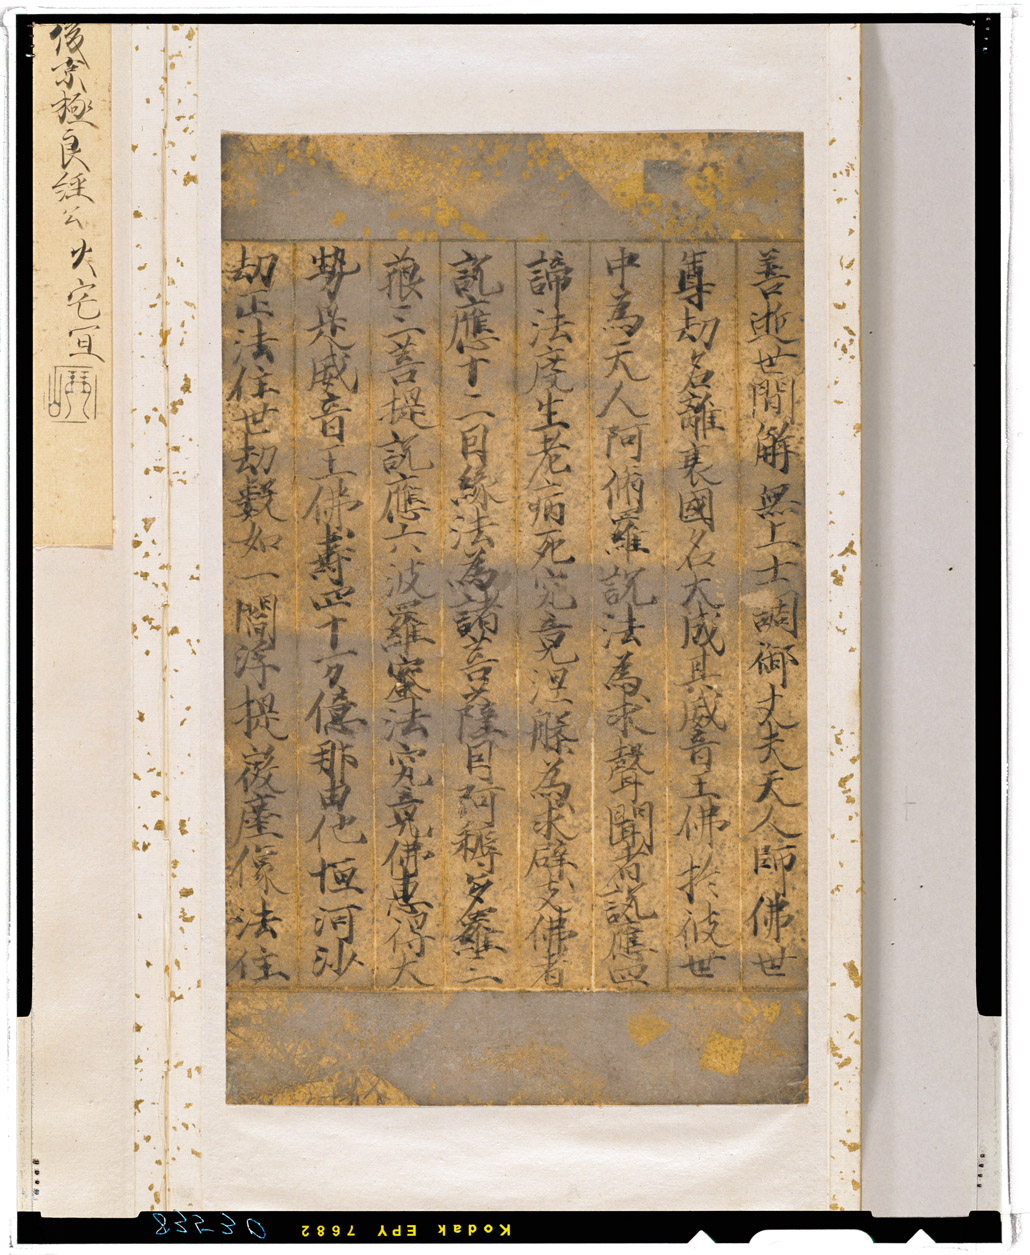 善逝世間解無上士調御丈夫天人師佛世
尊劫名離衰國名大成其威音王佛於彼世
中為天人阿脩羅說法為求聲聞者說應四
諦法度生老病死究竟涅槃為求辟支佛者
說應十二因緣法為諸菩薩因阿耨多羅三
藐三菩提說應六波羅蜜法究竟佛惠得大
勢是威音王佛壽四十万億那由他恒河沙
劫正法住世劫數如一閻浮提微塵像法住
後京極良経公 火宅
Kodak EPY 7682